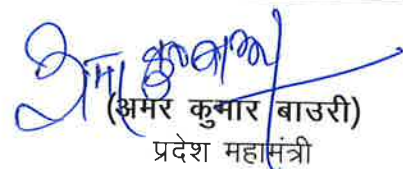 (अमर कुमार बाउरी)
प्रदेश महामंत्री